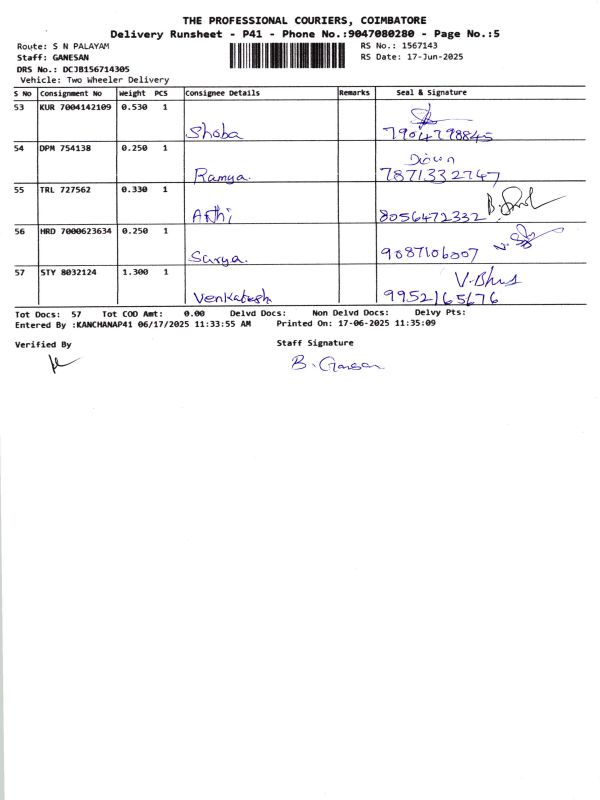 THE PROFESSIONAL COURIERS, COIMBATORE
Delivery Runsheet - P41 - Phone No.:9047080280 - Page No.:5
Route: S N PALAYAM RS No.: 1567143
Staff: GANESAN RS Date: 17-Jun-2025
DRS No.: DCJB156714305
Vehicle: Two Wheeler Delivery
S No Consignment No Weight PCS Consignee Details Remarks Seal & Signature
53 KUR 7004142109 0.530 1
Shoba 7904798845
54 DPM 754138 0.250 1
Ramya. 7871332747
55 TRL 727562 0.330 1
Arthi 8056472332
56 HRD 7000623634 0.250 1
Surya. 9087106007
57 STY 8032124 1.300 1
Venkatesh 9952165676
Tot Docs: 57 Tot COD Amt: 0.00 Delvd Docs: Non Delvd Docs: Delvy Pts:
Entered By :KANCHANAP41 06/17/2025 11:33:55 AM Printed On: 17-06-2025 11:35:09
Verified By Staff Signature
B. Ganesan